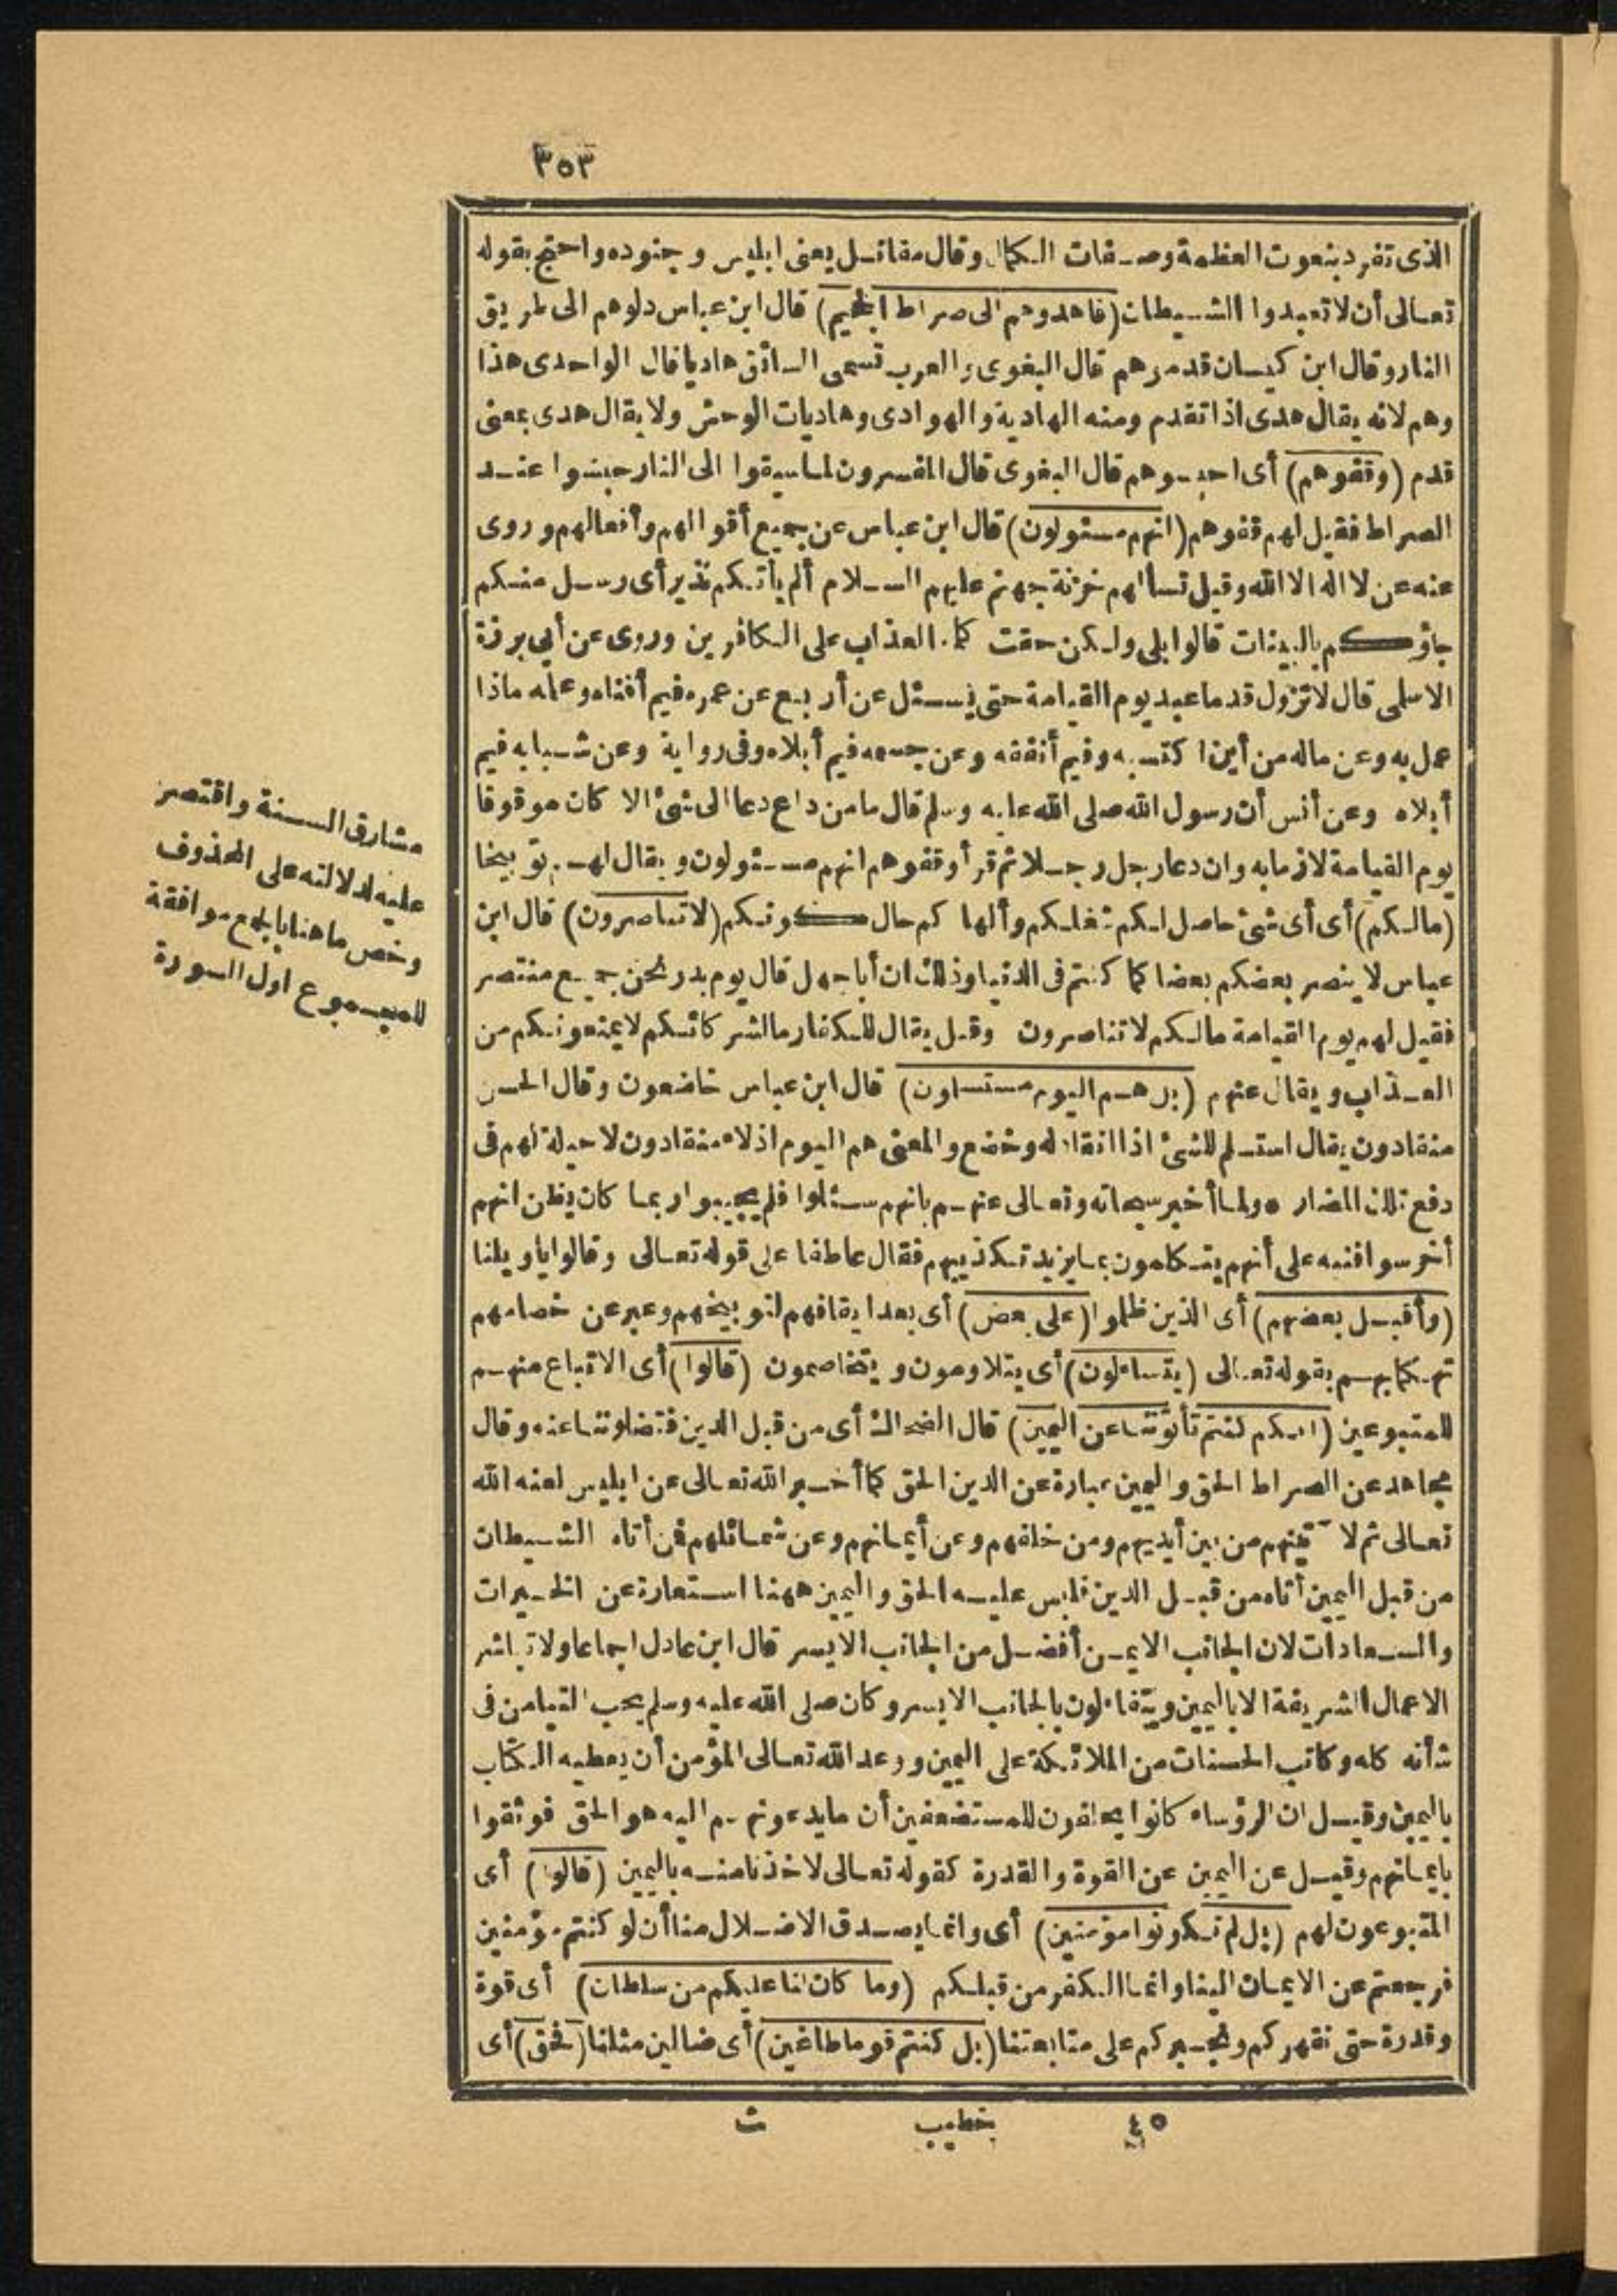 ٣٥٣
الذى تفرد بنعوت العظمة وصفات الكمال وقال مقاتل يعنى ابليس وجنوده واحتج بقوله
تعالى أن لا تعبدوا الشيطان (فاهدوهم الى صراط الجحيم) قال ابن عباس دلوهم الى طريق
النار وقال ابن كيسان قدموهم قال البغوى والعرب تسمى السائق هاديا قال الواحدى هذا
وهم لانه يقال هدى اذا تقدم ومنه الهادية والهوادى وهاديات الوحش ولا يقال هدى بمعنى
قدم (وقفوهم) أى احبسوهم قال البغوى قال المفسرون لما سيقوا الى النار حبسوا عند
الصراط فقيل لهم قفوهم (انهم مسئولون) قال ابن عباس عن جميع أقوالهم وأفعالهم وروى
عنه عن لا اله الا الله وقيل تسألهم خزنة جهنم عليهم السلام ألم يأتكم نذير أى رسل منكم
جاؤكم بالبينات قالوا بلى ولكن حقت كلمة العذاب على الكافرين وروى عن أبى برزة
الاسلمى قال لا تزول قدما عبد يوم القيامة حتى يسئل عن أربع عن عمره فيم أفناه وعلمه ماذا
عمل به وعن ماله من أين اكتسبه وفيم أنفقه وعن جسمه فيم أبلاه وفى رواية وعن شبابه فيم
أبلاه وعن أنس أن رسول الله صلى الله عليه وسلم قال ما من داع دعا الى شئ الا كان موقوفا
يوم القيامة لازما به وان دعا رجل رجلا ثم قرأ وقفوهم انهم مسئولون ويقال لهم توبيخا
(مالكم) أى أى شئ حاصل لكم شغلكم وألهاكم حال كونكم (لا تناصرون) قال ابن
عباس لا ينصر بعضكم بعضا كما كنتم فى الدنيا وذلك ان أبا جهل قال يوم بدر نحن جميع منتصر
فقيل لهم يوم القيامة مالكم لا تناصرون وقيل يقال للكفار ما لشركائكم لا يمنعونكم من
العذاب ويقال عنهم (بل هم اليوم مستسلمون) قال ابن عباس خاضعون وقال الحسن
منقادون يقال استسلم للشئ اذا انقاد له وخضع والمعنى هم اليوم اذلاء منقادون لا حيلة لهم فى
دفع تلك المضار ه ولما أخبر سبحانه وتعالى عنهم بانهم سئلوا فلم يجيبوا ربما كان يظن انهم
أخرسوا فنبه على أنهم يتكلمون بما يزيد تكذيبهم فقال عاطفا على قوله تعالى وقالوا يا ويلنا
(وأقبل بعضهم) أى الذين ظلموا (على بعض) أى بعد ايقافهم لتوبيخهم وعبر عن خصامهم
تهكما بهم بقوله تعالى (يتساءلون) أى يتلاومون ويتخاصمون (قالوا) أى الاتباع منهم
للمتبوعين (انكم كنتم تأتوننا عن اليمين) قال الضحاك أى من قبل الدين فتضلوننا عنه وقال
مجاهد عن الصراط الحق واليمين عبارة عن الدين الحق كما أخبر الله تعالى عن ابليس لعنه الله
تعالى ثم لآتينهم من بين أيديهم ومن خلفهم وعن أيمانهم وعن شمائلهم فمن أتاه الشيطان
من قبل اليمين أتاه من قبل الدين فلبس عليه الحق واليمين ههنا استعارة عن الخيرات
والسعادات لان الجانب الايمن أفضل من الجانب الايسر قال ابن عادل اجماعا ولا تباشر
الاعمال الشريفة الا باليمين ويتفاءلون بالجانب الايسر وكان صلى الله عليه وسلم يحب التيامن فى
شأنه كله وكاتب الحسنات من الملائكة على اليمين ووعد الله تعالى المؤمن أن يعطيه الكتاب
باليمين وقيل ان الرؤساء كانوا يحلفون للمستضعفين أن ما يدعونهم اليه هو الحق فوثقوا
بايمانهم وقيل عن اليمين عن القوة والقدرة كقوله تعالى لاخذنا منه باليمين (قالوا) أى
المتبوعون لهم (بل لم تكونوا مؤمنين) أى وانما يصدق الاضلال منا أن لو كنتم مؤمنين
فرجعتم عن الايمان الينا وانما الكفر من قبلكم (وما كان لنا عليكم من سلطان) أى قوة
وقدرة حتى نقهركم ونجبركم على متابعتنا (بل كنتم قوما طاغين) أى ضالين مثلنا (فحق) أى
مشارق السنة واقتصر
عليه لدلالته على المحذوف
وخص ما هنا بالجمع موافقة
للمجموع اول السورة
٤٥ خطيب ث